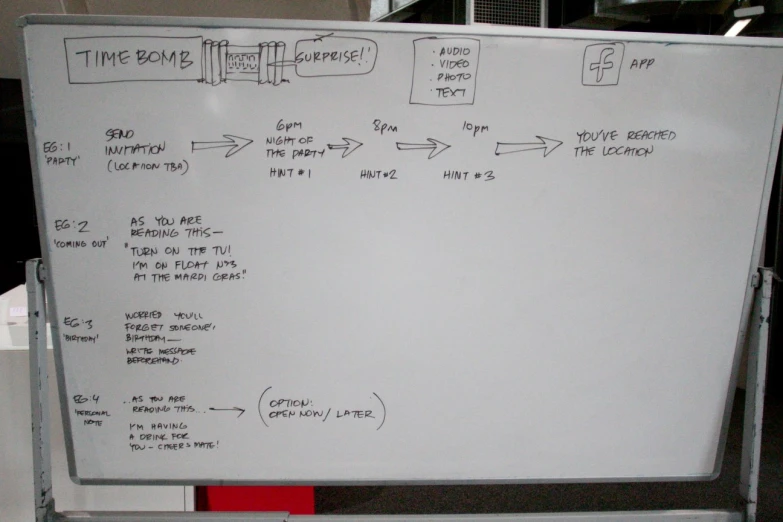 TIME BOMB
SURPRISE!!
· AUDIO
· VIDEO
· PHOTO
· TEXT
f APP
EG:1
'PARTY'
SEND
INVITATION
(LOCATION TBA)
6pm
NIGHT OF
THE PARTY
HINT #1
8pm
HINT #2
10pm
HINT #3
YOU'VE REACHED
THE LOCATION
EG:2
'COMING OUT'
AS YOU ARE
READING THIS—
"TURN ON THE TV!
I'M ON FLOAT Nº3
AT THE MARDI GRAS!"
EG:3
'BIRTHDAY'
WORRIED YOU'LL
FORGET SOMEONE'S
BIRTHDAY—
WRITE MESSAGE
BEFOREHAND
EG:4
'PERSONAL
NOTE
..AS YOU ARE
READING THIS...
I'M HAVING
A DRINK FOR
YOU – CHEERS MATE!
(OPTION:
OPEN NOW / LATER)